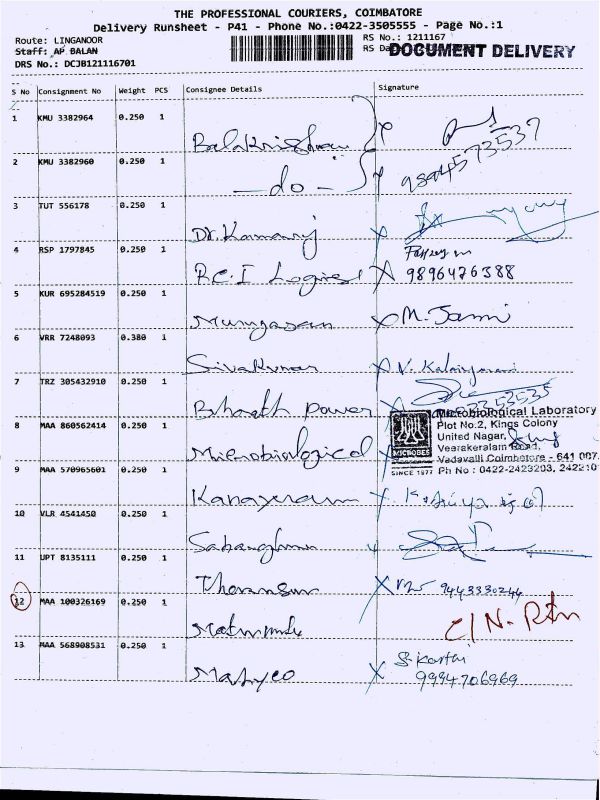 THE PROFESSIONAL COURIERS, COIMBATORE
Delivery Runsheet - P41 - Phone No.:0422-3505555 - Page No.:1
Route: LINGANOOR
RS No.: 1211167
Staff: AP BALAN
RS Da
DOCUMENT DELIVERY
DRS No.: DCJB121116701
S No Consignment No Weight PCS Consignee Details Signature
1 KMU 3382964 0.250 1 Balakrishnan
2 KMU 3382960 0.250 1 -do- 9894573537
3 TUT 556178 0.250 1 Dr. Kamaraj
4 RSP 1797845 0.250 1 R.C.I Logist 9896476388
5 KUR 695284519 0.250 1 Murugasan M. Jami
6 VRR 7248093 0.380 1 Sivakumar V. Kalaiyarasi
7 TRZ 305432910 0.250 1 Bharath power
8 MAA 860562414 0.250 1 Microbiological
Microbiological Laboratory
Plot No.2, Kings Colony
United Nagar,
Veerakeralam Road,
Vadavalli Coimbatore - 641 007.
Ph No : 0422-2423203, 242210
MICROBES
SINCE 1977
9 MAA 570965601 0.250 1
10 VLR 4541450 0.250 1
11 UPT 8135111 0.250 1 9443330244
12 MAA 100326169 0.250 1 C/N. Rtn
13 MAA 568908531 0.250 1 Mahyco S. Karthi
9994706969